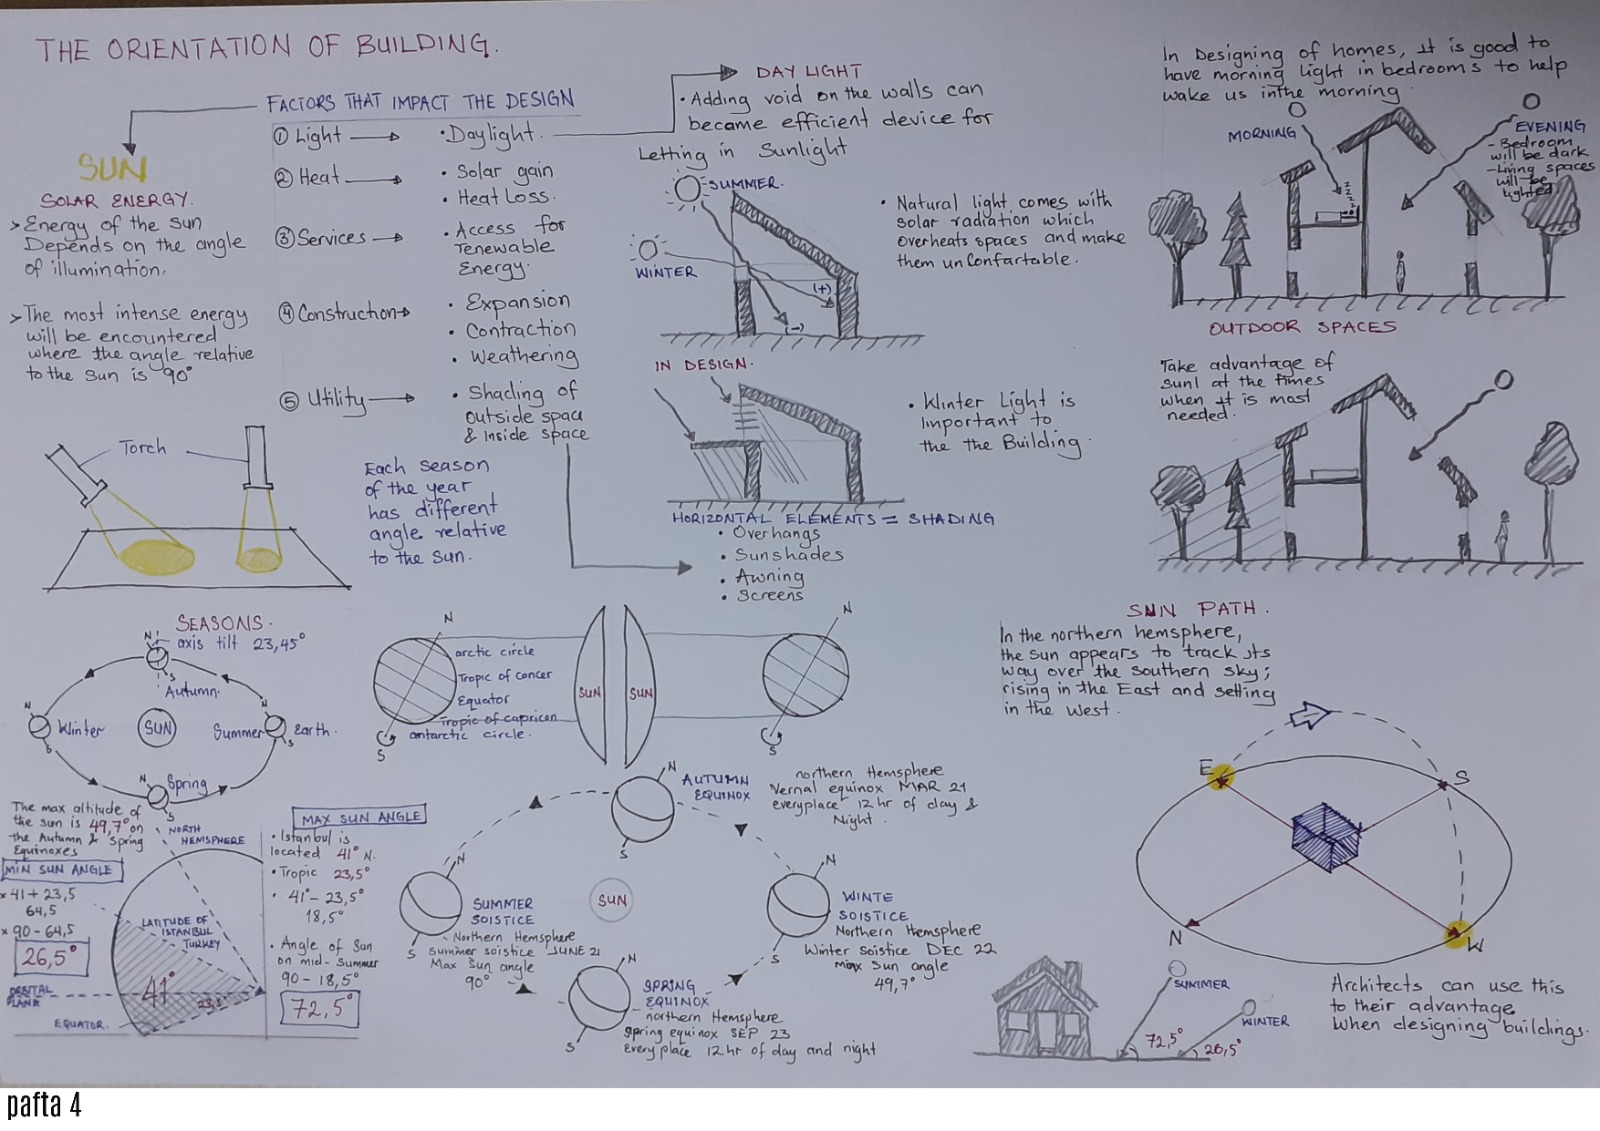 THE ORIENTATION OF BUILDING.
FACTORS THAT IMPACT THE DESIGN
① Light
• Daylight.
② Heat
• Solar gain
• Heat Loss.
③ Services
• Access for
renewable
Energy.
④ Construction
• Expansion
• Contraction
• Weathering
⑤ Utility
• Shading of
outside space
& Inside space
SUN
SOLAR ENERGY.
> Energy of the sun
Depends on the angle
of illumination.
> The most intense energy
will be encountered
where the angle relative
to the Sun is 90°
Torch
Each season
of the year
has different
angle relative
to the sun.
DAY LIGHT
• Adding void on the walls can
became efficient device for
Letting in Sunlight
SUMMER.
WINTER
(+)
(-)
• Natural light comes with
solar radiation which
overheats spaces and make
them unconfartable.
IN DESIGN.
• Winter Light is
important to
the the Building.
HORIZONTAL ELEMENTS = SHADING
• Overhangs
• Sunshades
• Awning
• Screens
In Designing of homes, it is good to
have morning light in bedrooms to help
wake us in the morning.
MORNING
EVENING
- Bedroom
will be dark
- Living spaces
will be
lighted
z
z
z
z
OUTDOOR SPACES
Take advantage of
sunl at the times
when it is most
needed.
SEASONS.
N
axis tilt 23,45°
S
Autumn.
N
Winter
S
SUN
Summer
N
S
Earth.
Spring
N
S
N
arctic circle
Tropic of cancer
Equator
Tropic of capricon
antarctic circle.
S
SUN
SUN
N
S
The max altitude of
the sun is 49,7° on
the Autumn & Spring
Equinoxes
MIN SUN ANGLE
× 41 + 23,5
64,5
× 90 - 64,5
26,5°
ORBITAL
PLANE
EQUATOR.
NORTH
HEMSPHERE
LATITUDE OF
ISTANBUL
TURKEY
41°
23,5°
MAX SUN ANGLE
• Istanbul is
located 41° N.
• Tropic 23,5°
• 41° - 23,5°
18,5°
• Angle of Sun
on mid-Summer
90 - 18,5°
72,5°
N
S
AUTUMN
EQUINOX
northern Hemsphere
Vernal equinox MAR 21
everyplace 12 hr of day &
Night.
N
S
SUMMER
SOISTICE
Northern Hemsphere
Summer soistice JUNE 21
Max Sun angle
90°
SUN
N
S
WINTE
SOISTICE
Northern Hemsphere
Winter Soistice DEC 22
max Sun angle
49,7°
N
S
SPRING
EQUINOX
northern Hemsphere
Spring equinox SEP 23
Every place 12 hr of day and night
SUN PATH.
In the northern hemsphere,
the sun appears to track its
way over the southern sky;
rising in the East and setting
in the West.
E
S
N
W
SUMMER
WINTER
72,5°
26,5°
Architects can use this
to their advantage
when designing buildings.
pafta 4